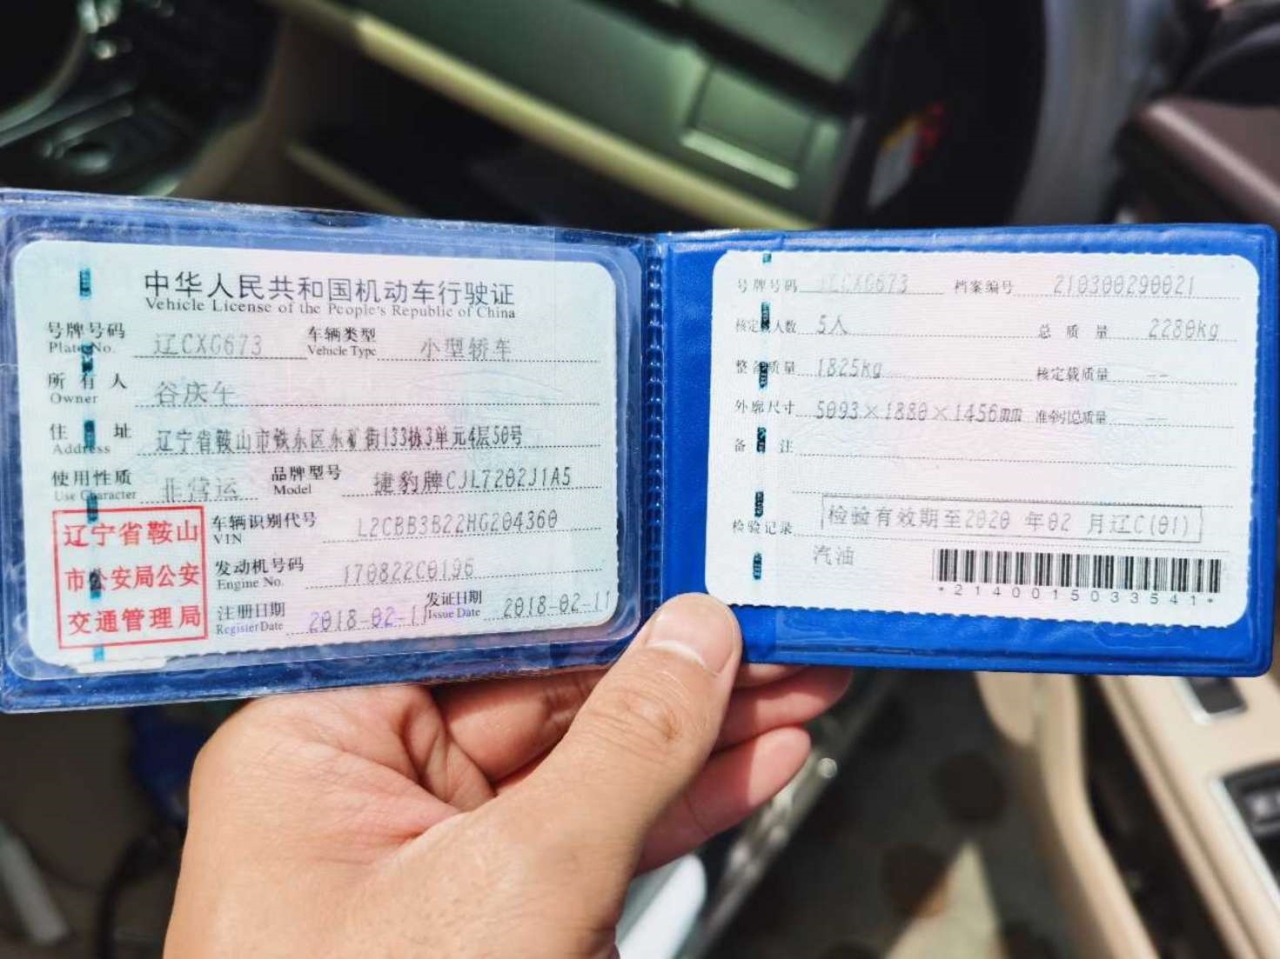 中华人民共和国机动车行驶证
Vehicle License of the People's Republic of China
号牌号码 辽CXG673 车辆类型 小型轿车
Plate No. Vehicle Type
所有人 谷庆
Owner
住址 辽宁省鞍山市铁东区东矿街133栋3单元4层50号
Address
使用性质 非营运 品牌型号 捷豹牌CJL7202J1A5
Use Character Model
车辆识别代号 L2CBB3B22HG204360
VIN
发动机号码 170822C0196
Engine No.
注册日期 2018-02-11 发证日期 2018-02-11
Register Date Issue Date
辽宁省鞍山
市公安局公安
交通管理局
号牌号码 辽CXG673 档案编号 210300290021
核定人数 5人 总质量 2280kg
整备质量 1825kg 核定载质量 --
外廓尺寸 5093×1880×1456mm 准牵引总质量 --
备注
检验记录 检验有效期至2020 年02 月辽C(01)
汽油
*2140015033541*